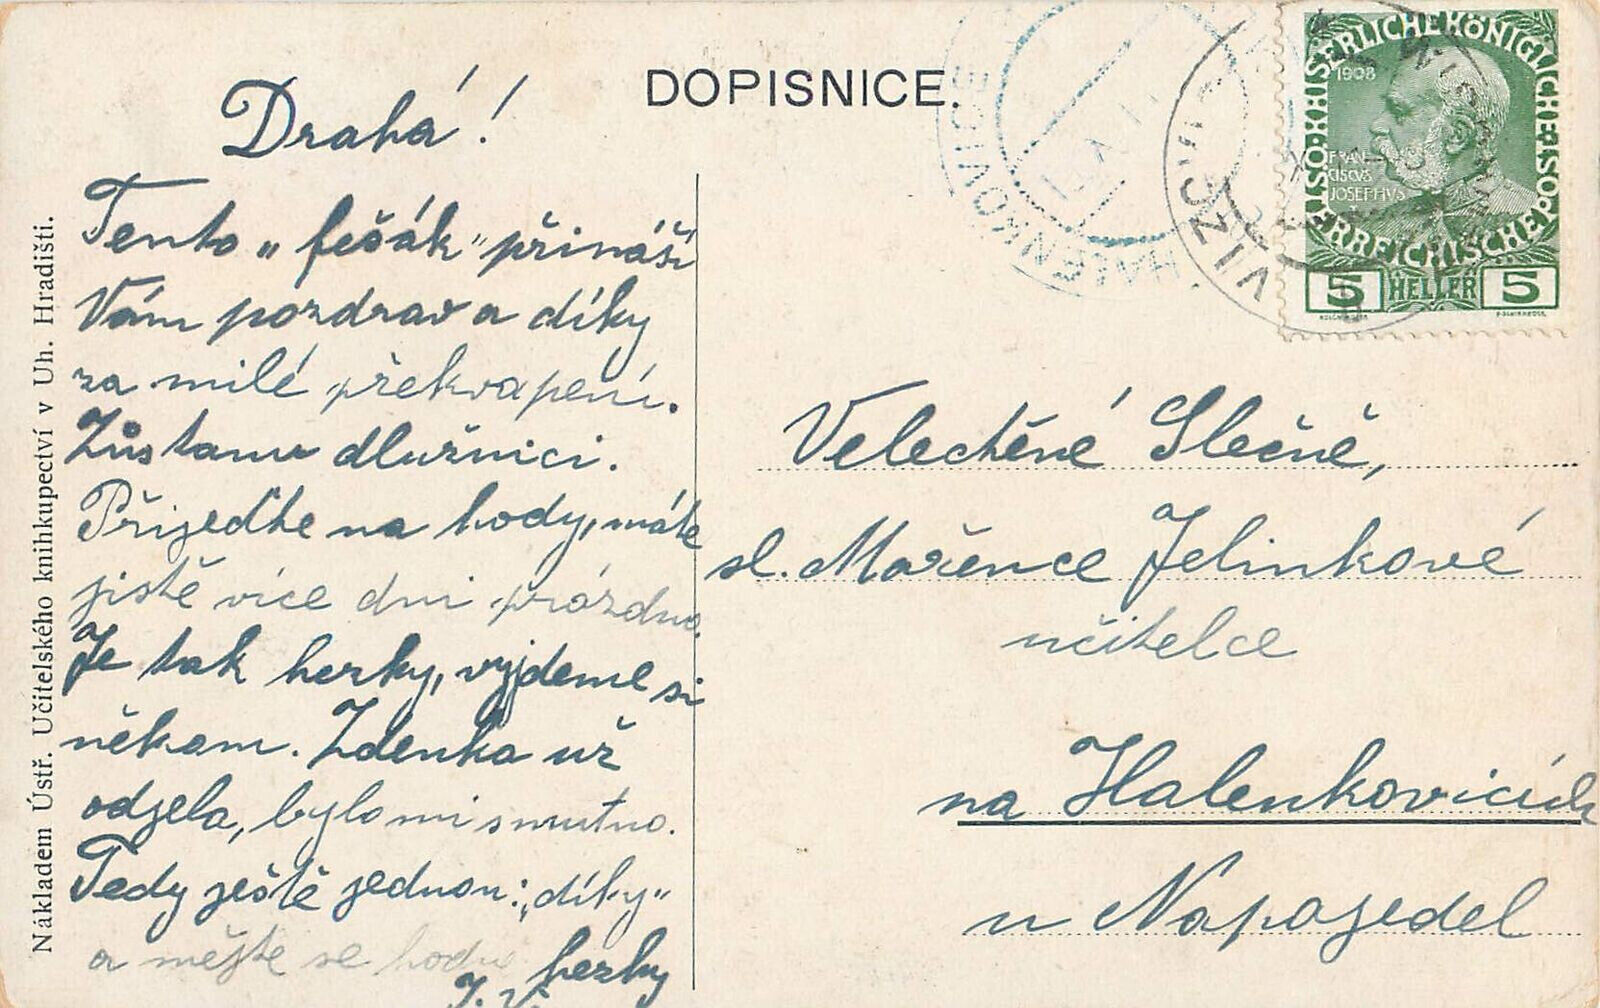 DOPISNICE.
Drahá!
Tento „fešák" přináší
Vám pozdrav a díky
za milé překvapení.
Zůstanu dlužnicí.
Přijeďte na hody, máte
jistě více dní prázdno.
Je tak hezky, vyjdeme si
někam. Zdenka už
odjela, bylo mi smutno.
Tedy ještě jednou: „díky"
a mějte se hodně hezky
Velectěné Slečně,
sl. Mařence Jelinkové
učitelce
na Halenkovicích
u Napajedel
Nákladem Ústř. Učitelského knihkupectví v Uh. Hradišti.
KAISERLICHE KÖNIGLICHE
ÖSTERREICHISCHE POST
1908
FRAN
CISCVS
JOSEPHVS
5 HELLER 5
HALENKOVICE
VIZOVIC